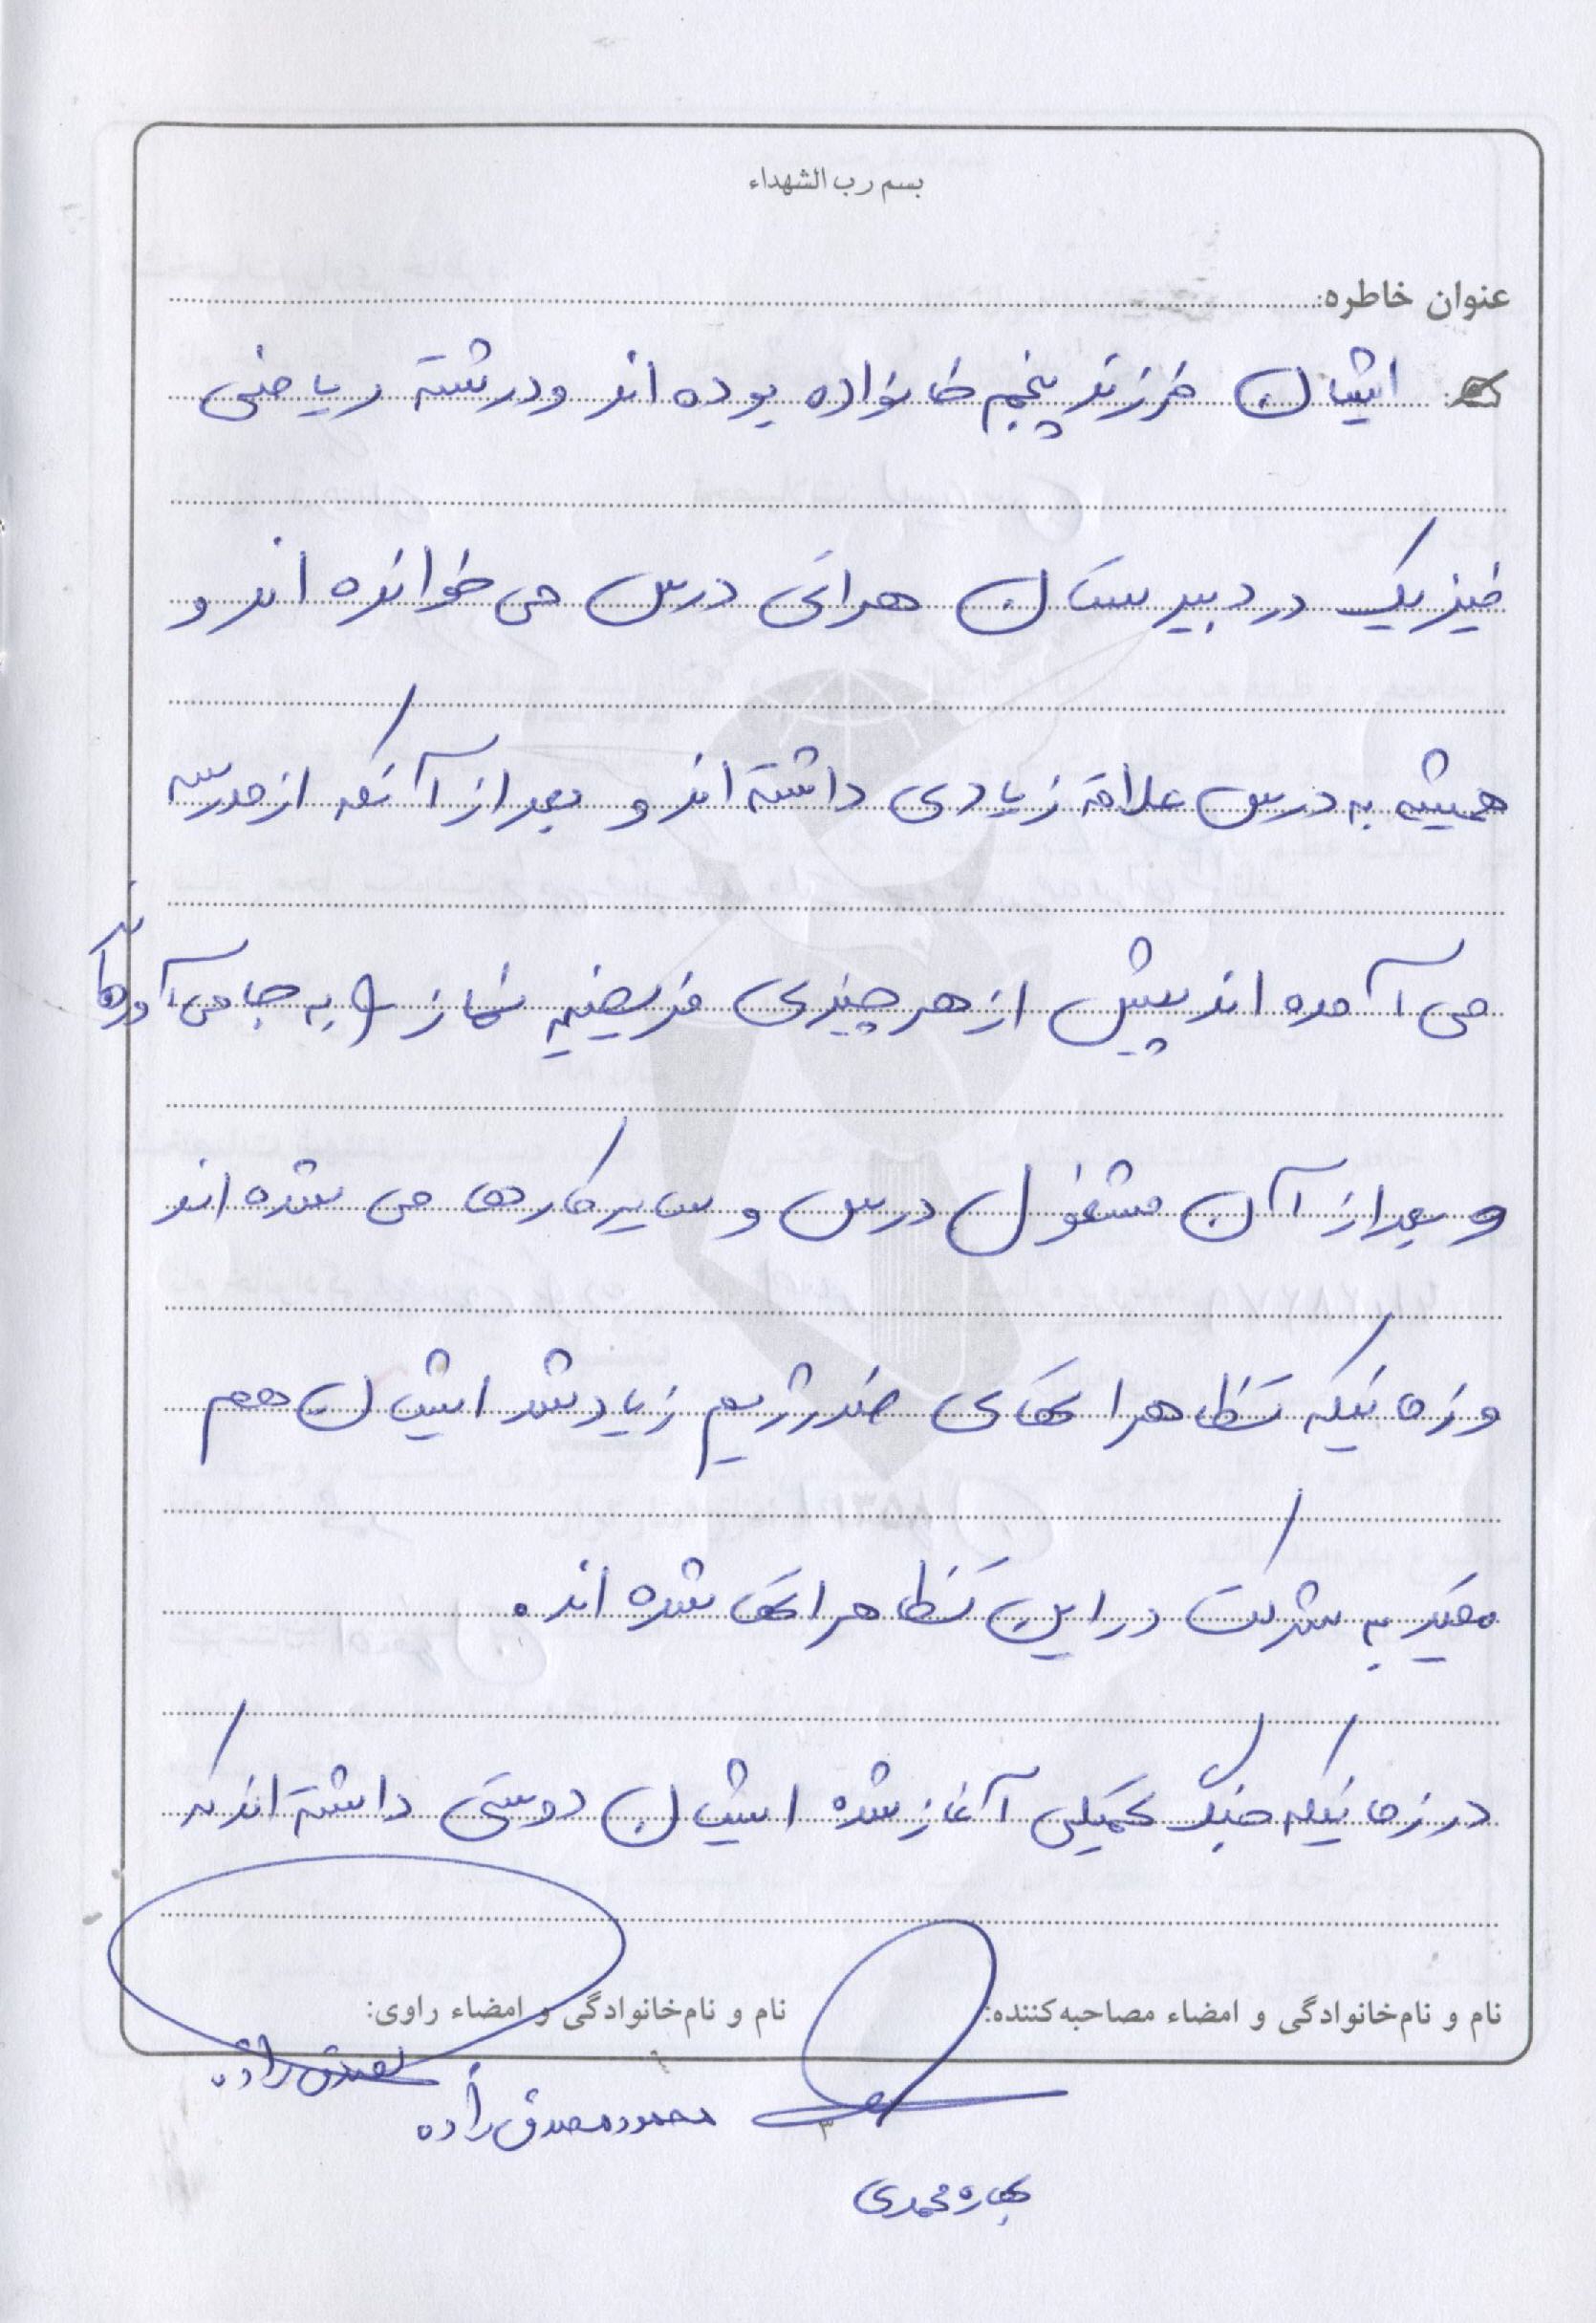 بسم رب الشهداء
عنوان خاطره:
ایشان فرزند پنجم خانواده بوده اند و در رشته ریاضی
فیزیک در دبیرستان هراتی درس می خوانده اند و
همیشه به درس علاقه زیادی داشته اند و بعد از آنکه از مدرسه
می آمده اند پیش از هر چیزی فریضه نماز را به جا می آورده‌اند
و بعد از آن مشغول درس و سایر کارها می شده اند
و زمانیکه تظاهراتهای ضد رژیم زیاد شد ایشان هم
مقید به شرکت در این تظاهراتها شده اند.
در زمانیکه جنگ تحمیلی آغاز شده ایشان دوستی داشته اند که
نام و نام‌خانوادگی و امضاء مصاحبه‌کننده:
نام و نام‌خانوادگی و امضاء راوی:
مصدق زاده
محمود مصدق زاده
۳
بهاره محمدی